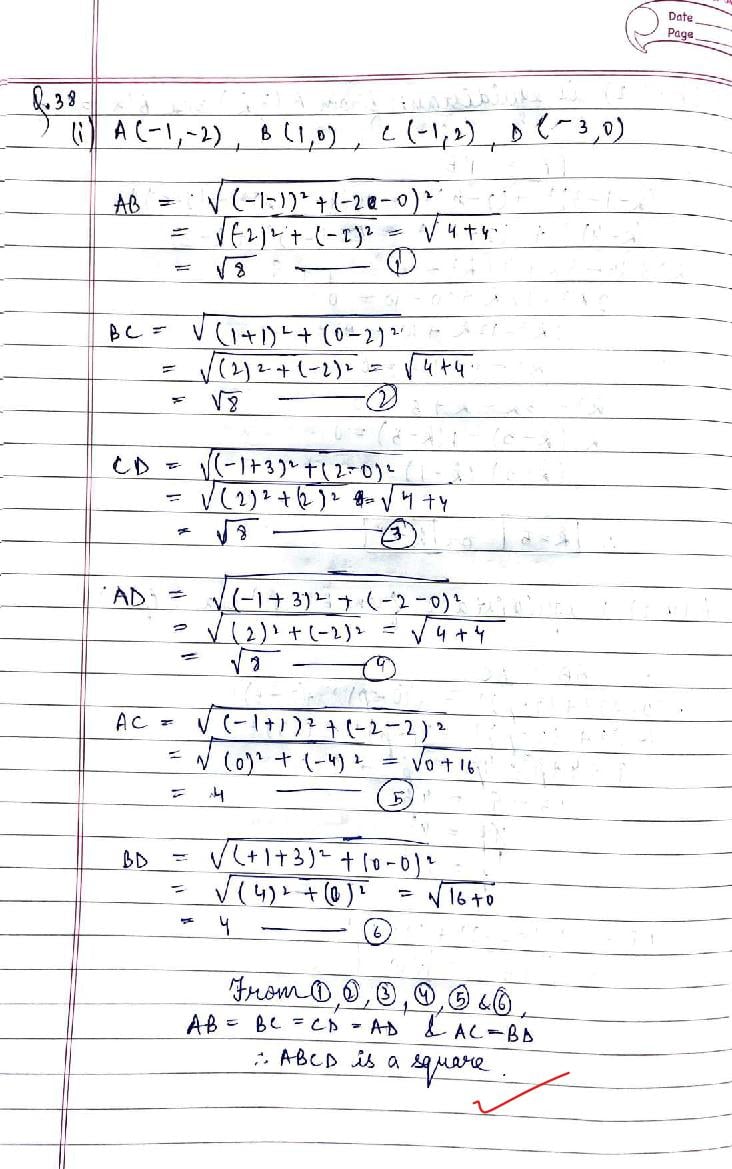 Date
Page
Q.38
(i) A(-1,-2), B(1,0), C(-1,2), D(-3,0)
AB = √(-1-1)² + (-2-0)²
= √(-2)² + (-2)² = √4+4
= √8 —— ①
BC = √(1+1)² + (0-2)²
= √(2)² + (-2)² = √4+4
= √8 —— ②
CD = √(-1+3)² + (2-0)²
= √(2)² + (2)² = √4+4
= √8 —— ③
AD = √(-1+3)² + (-2-0)²
= √(2)² + (-2)² = √4+4
= √8 —— ④
AC = √(-1+1)² + (-2-2)²
= √(0)² + (-4)² = √0+16
= 4 —— ⑤
BD = √(+1+3)² + (0-0)²
= √(4)² + (0)² = √16+0
= 4 —— ⑥
From ①, ②, ③, ④, ⑤ & ⑥,
AB = BC = CD = AD & AC = BD
∴ ABCD is a square.